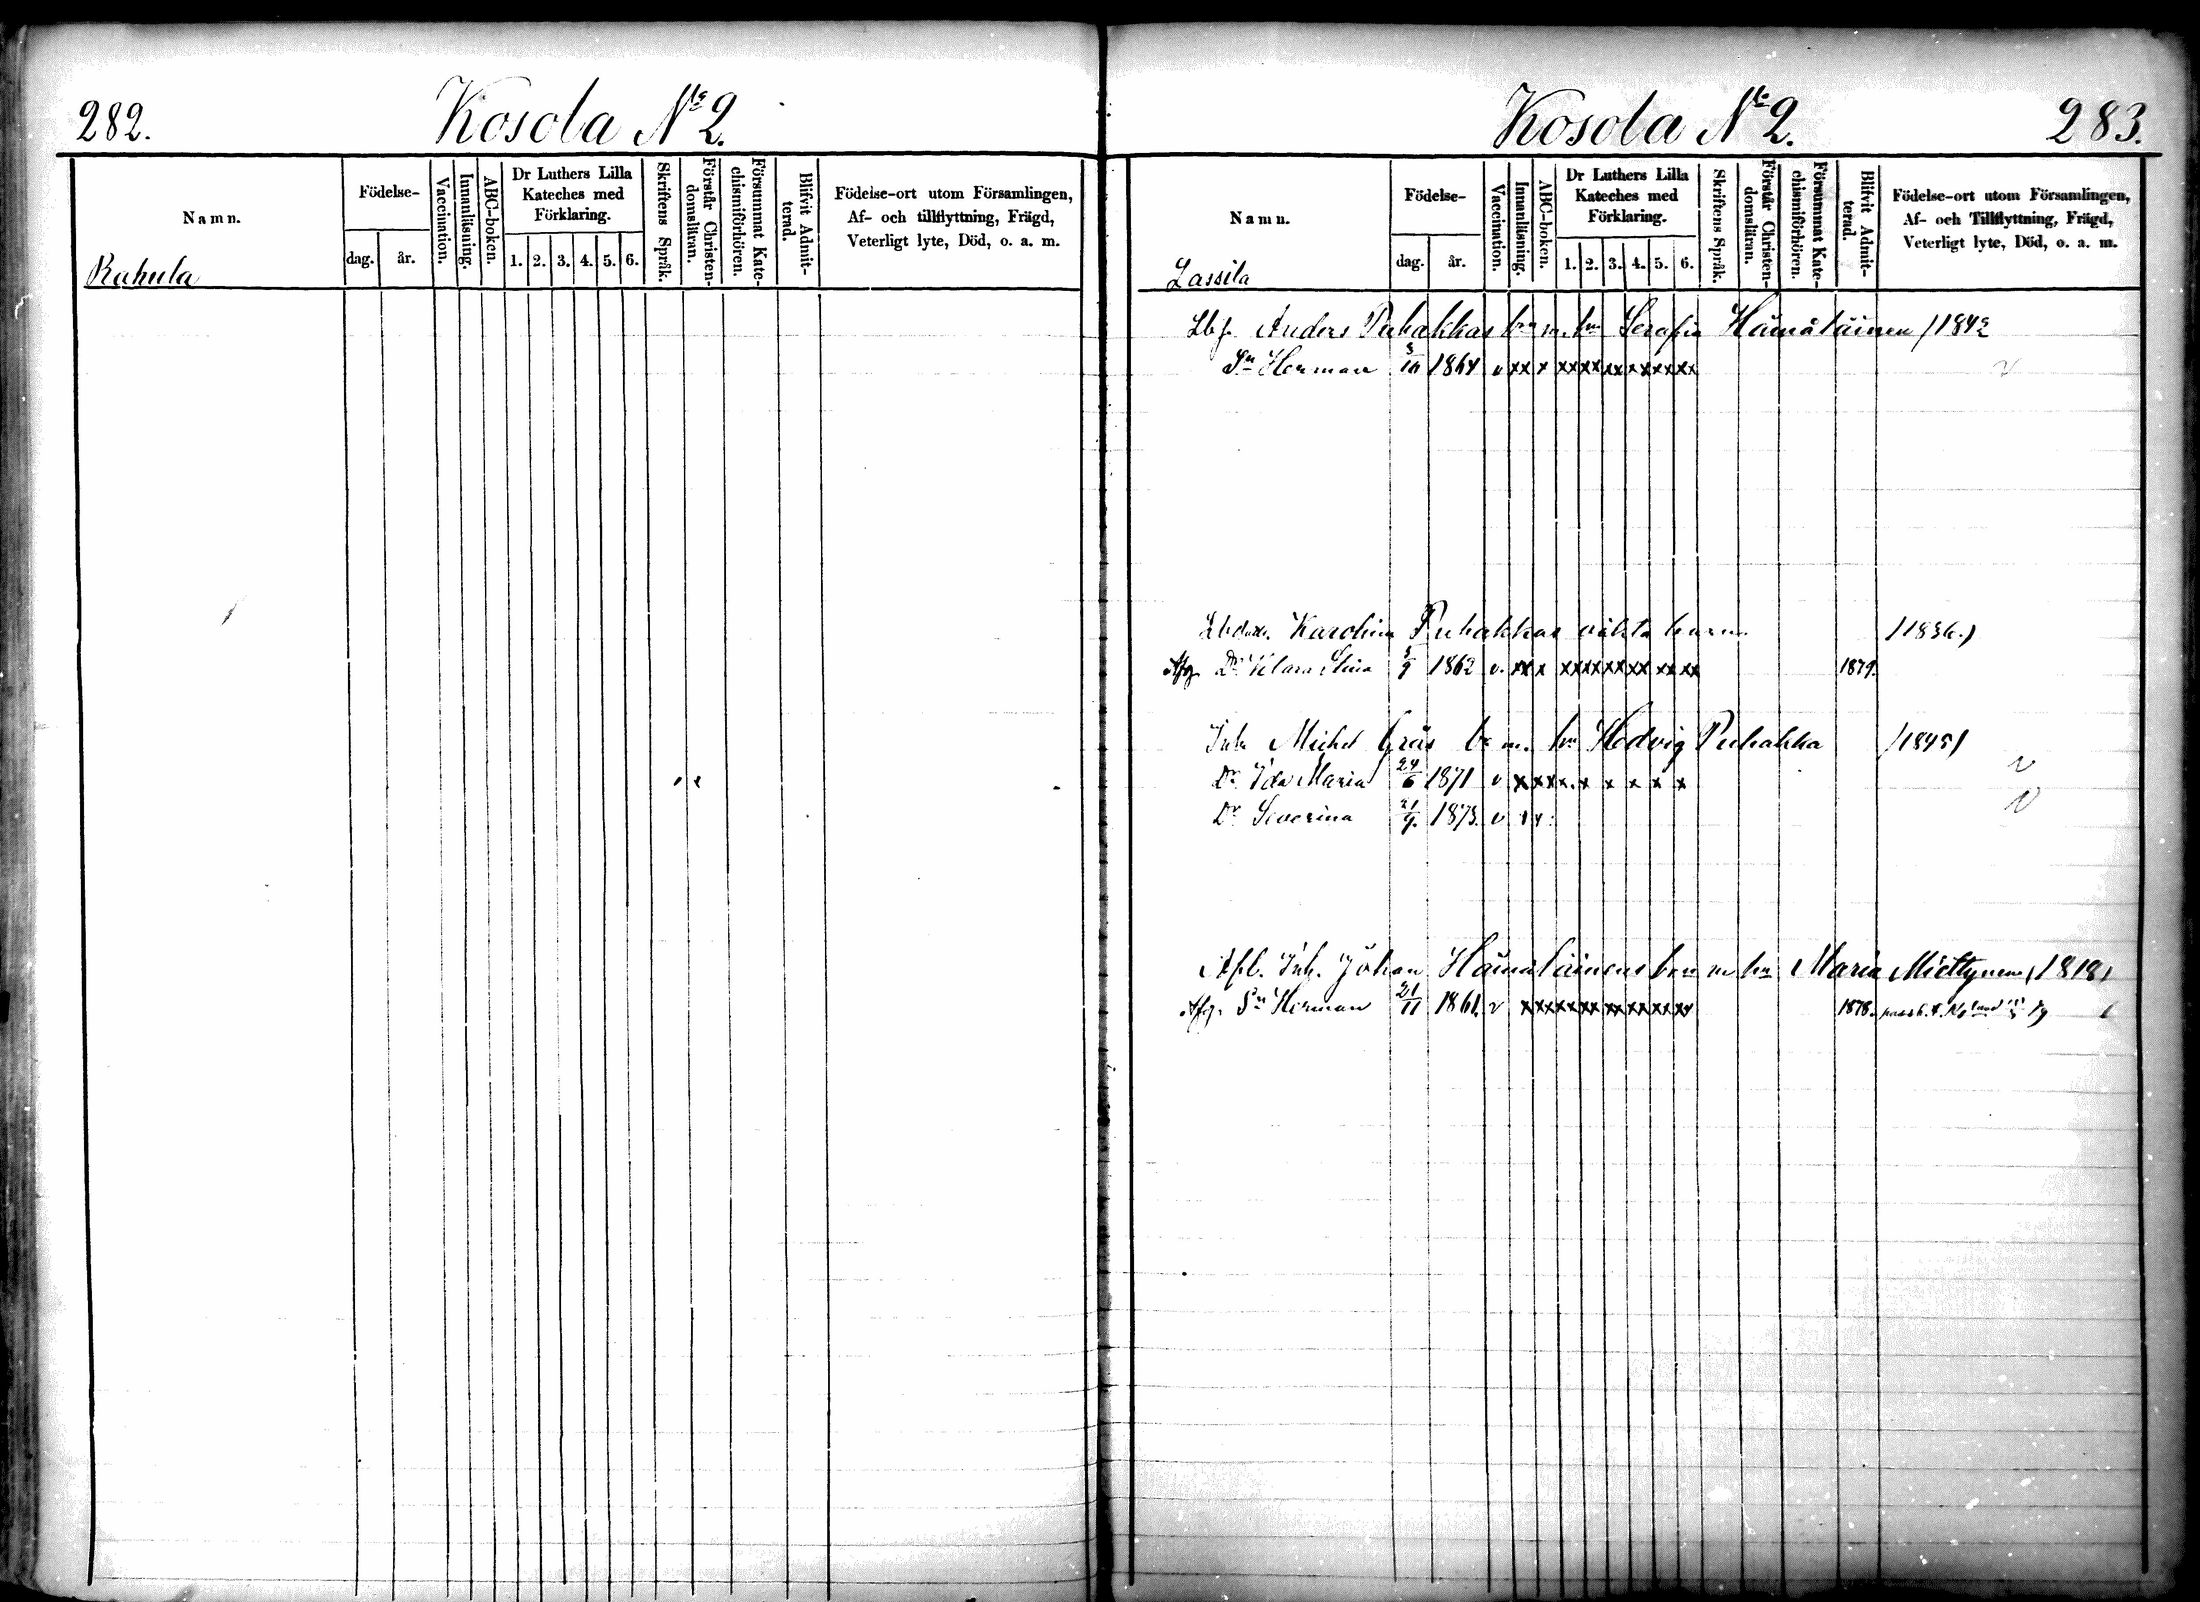 282.
Kosola No 2.
Namn.
Födelse-
dag.
år.
Vaccination.
Innanläsning.
ABC-boken.
Dr Luthers Lilla
Kateches med
Förklaring.
1. 2. 3. 4. 5. 6.
Skriftens Språk.
Förstår Christen-
domsläran.
Försummat Kate-
chismiförhören.
Blifvit Admit-
terad.
Födelse-ort utom Församlingen,
Af- och tillflyttning, Frägd,
Veterligt lyte, Död, o. a. m.
Rahula
Kosola No 2.
283.
Namn.
Födelse-
dag.
år.
Vaccination.
Innanläsning.
ABC-boken.
Dr Luthers Lilla
Kateches med
Förklaring.
1. 2. 3. 4. 5. 6.
Skriftens Språk.
Förstår Christen-
domsläran.
Försummat Kate-
chismiförhören.
Blifvit Admit-
terad.
Födelse-ort utom Församlingen,
Af- och Tillflyttning, Frägd,
Veterligt lyte, Död, o. a. m.
Lassila
Anders Puhakkas barn m. hu Serafia Hämäläinen /1842
Sn Herman 1864 v xx x xx xx xx xx xx xx
Karolina Puhakkas oäkta barn /1836.)
Afg. Dr Klara Stina 5/9 1862 v. xx x xx xx xx xx xx xx 1879.
Inh. Michel b. m. hu Hedvig Puhakka /1845/
Dr Ida Maria 24/6 1871 v x x x x x x x x x
Dr Severina 21/9. 1873. v
Afl. Inh. Johan Hämäläinens barn m hu Maria Miettynen /1818/
Afg. Sn Herman 21/11 1861. v xx xx xx xx xx xx xx 1878.